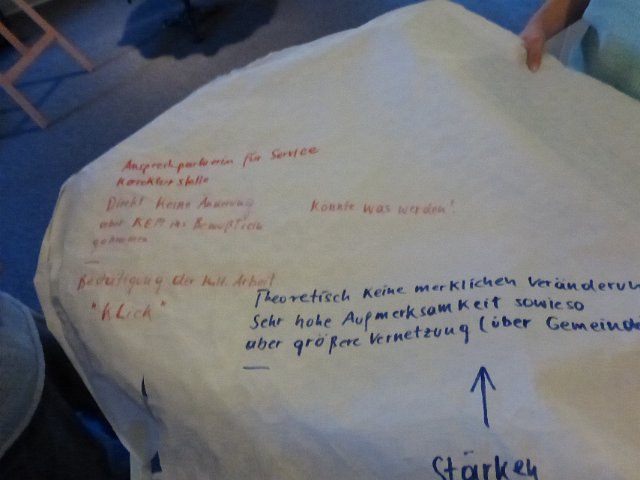 Ansprechpartnerin für Service
Korrektur stelle
Direkt Keine Änderung
aber KEM ins Bewußtsein
genommen
Könnte was werden!
Bestätigung der Kult. Arbeit
"Klick"
Theoretisch keine merklichen Veränderun
Sehr hohe Aufmerksamkeit sowieso
aber größere Vernetzung (über Gemeind
Stärken